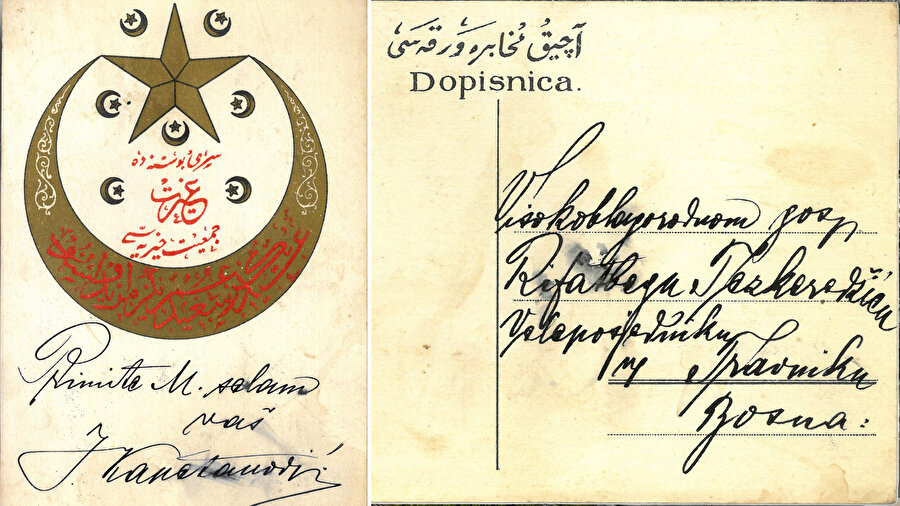 سراى بوسنه ده
غيرت
جمعيت خيريه سى
Primite M. selam
vaš
آچيق مُخابره ورقه سى
Dopisnica.
Visokoblagorodnom gosp
Rifatbegu Tezkeredžiću
Veleposjedniku
u Travniku
Bosna: